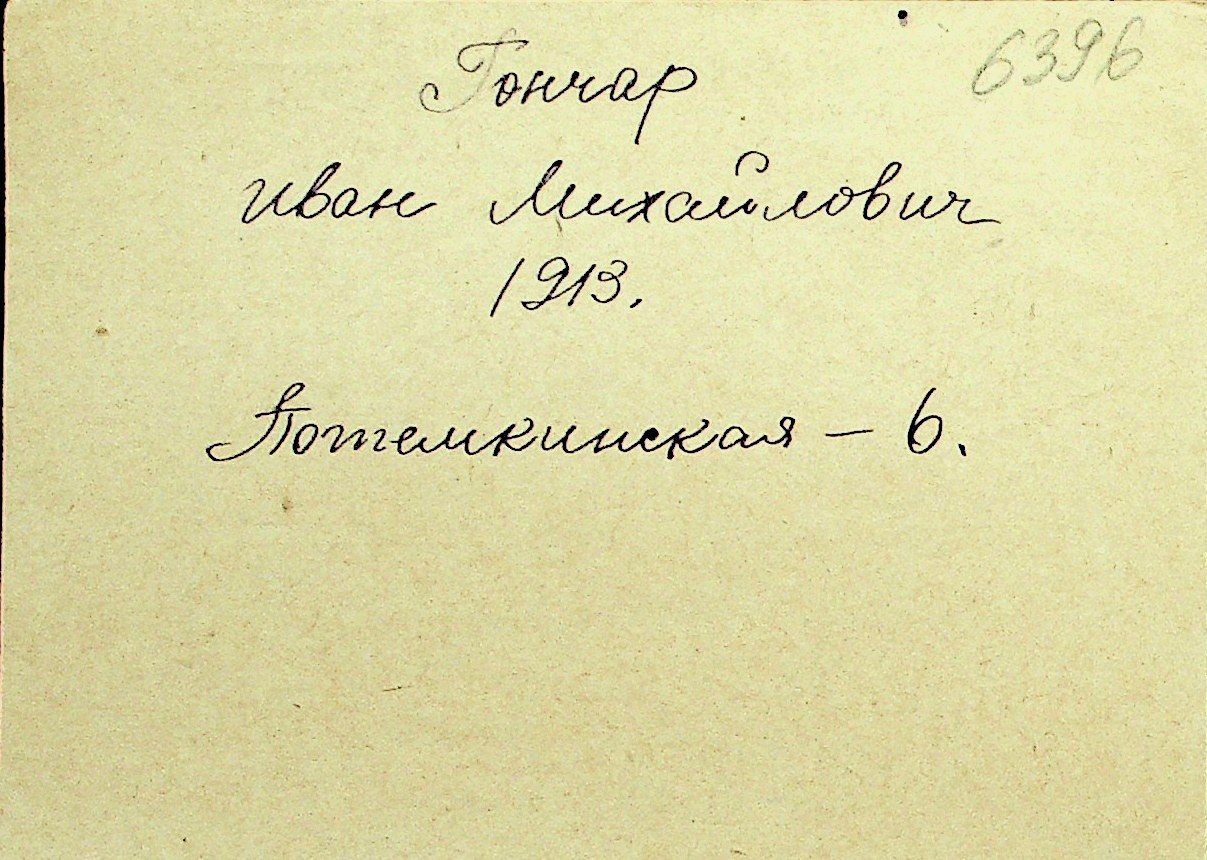 6396
Гончар
Иван Михайлович
1913.
Потемкинская – 6.